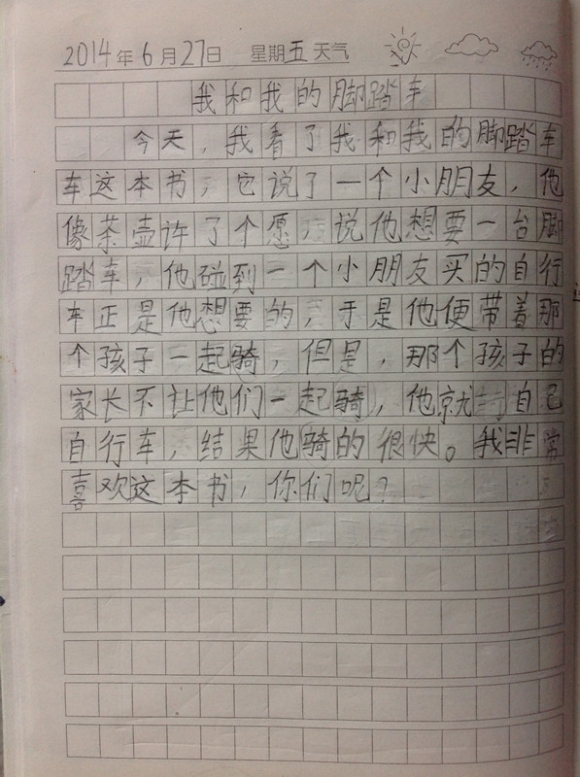 2014年6月27日 星期五 天气
我和我的脚踏车
今天，我看了我和我的脚踏车
车这本书，它说了一个小朋友，他
像茶壶许了个愿，说他想要一台脚
踏车，他碰到一个小朋友买的自行
车正是他想要的，于是他便带着那
个孩子一起骑，但是，那个孩子的
家长不让他们一起骑，他就自己
自行车，结果他骑的很快。我非常
喜欢这本书，你们呢？